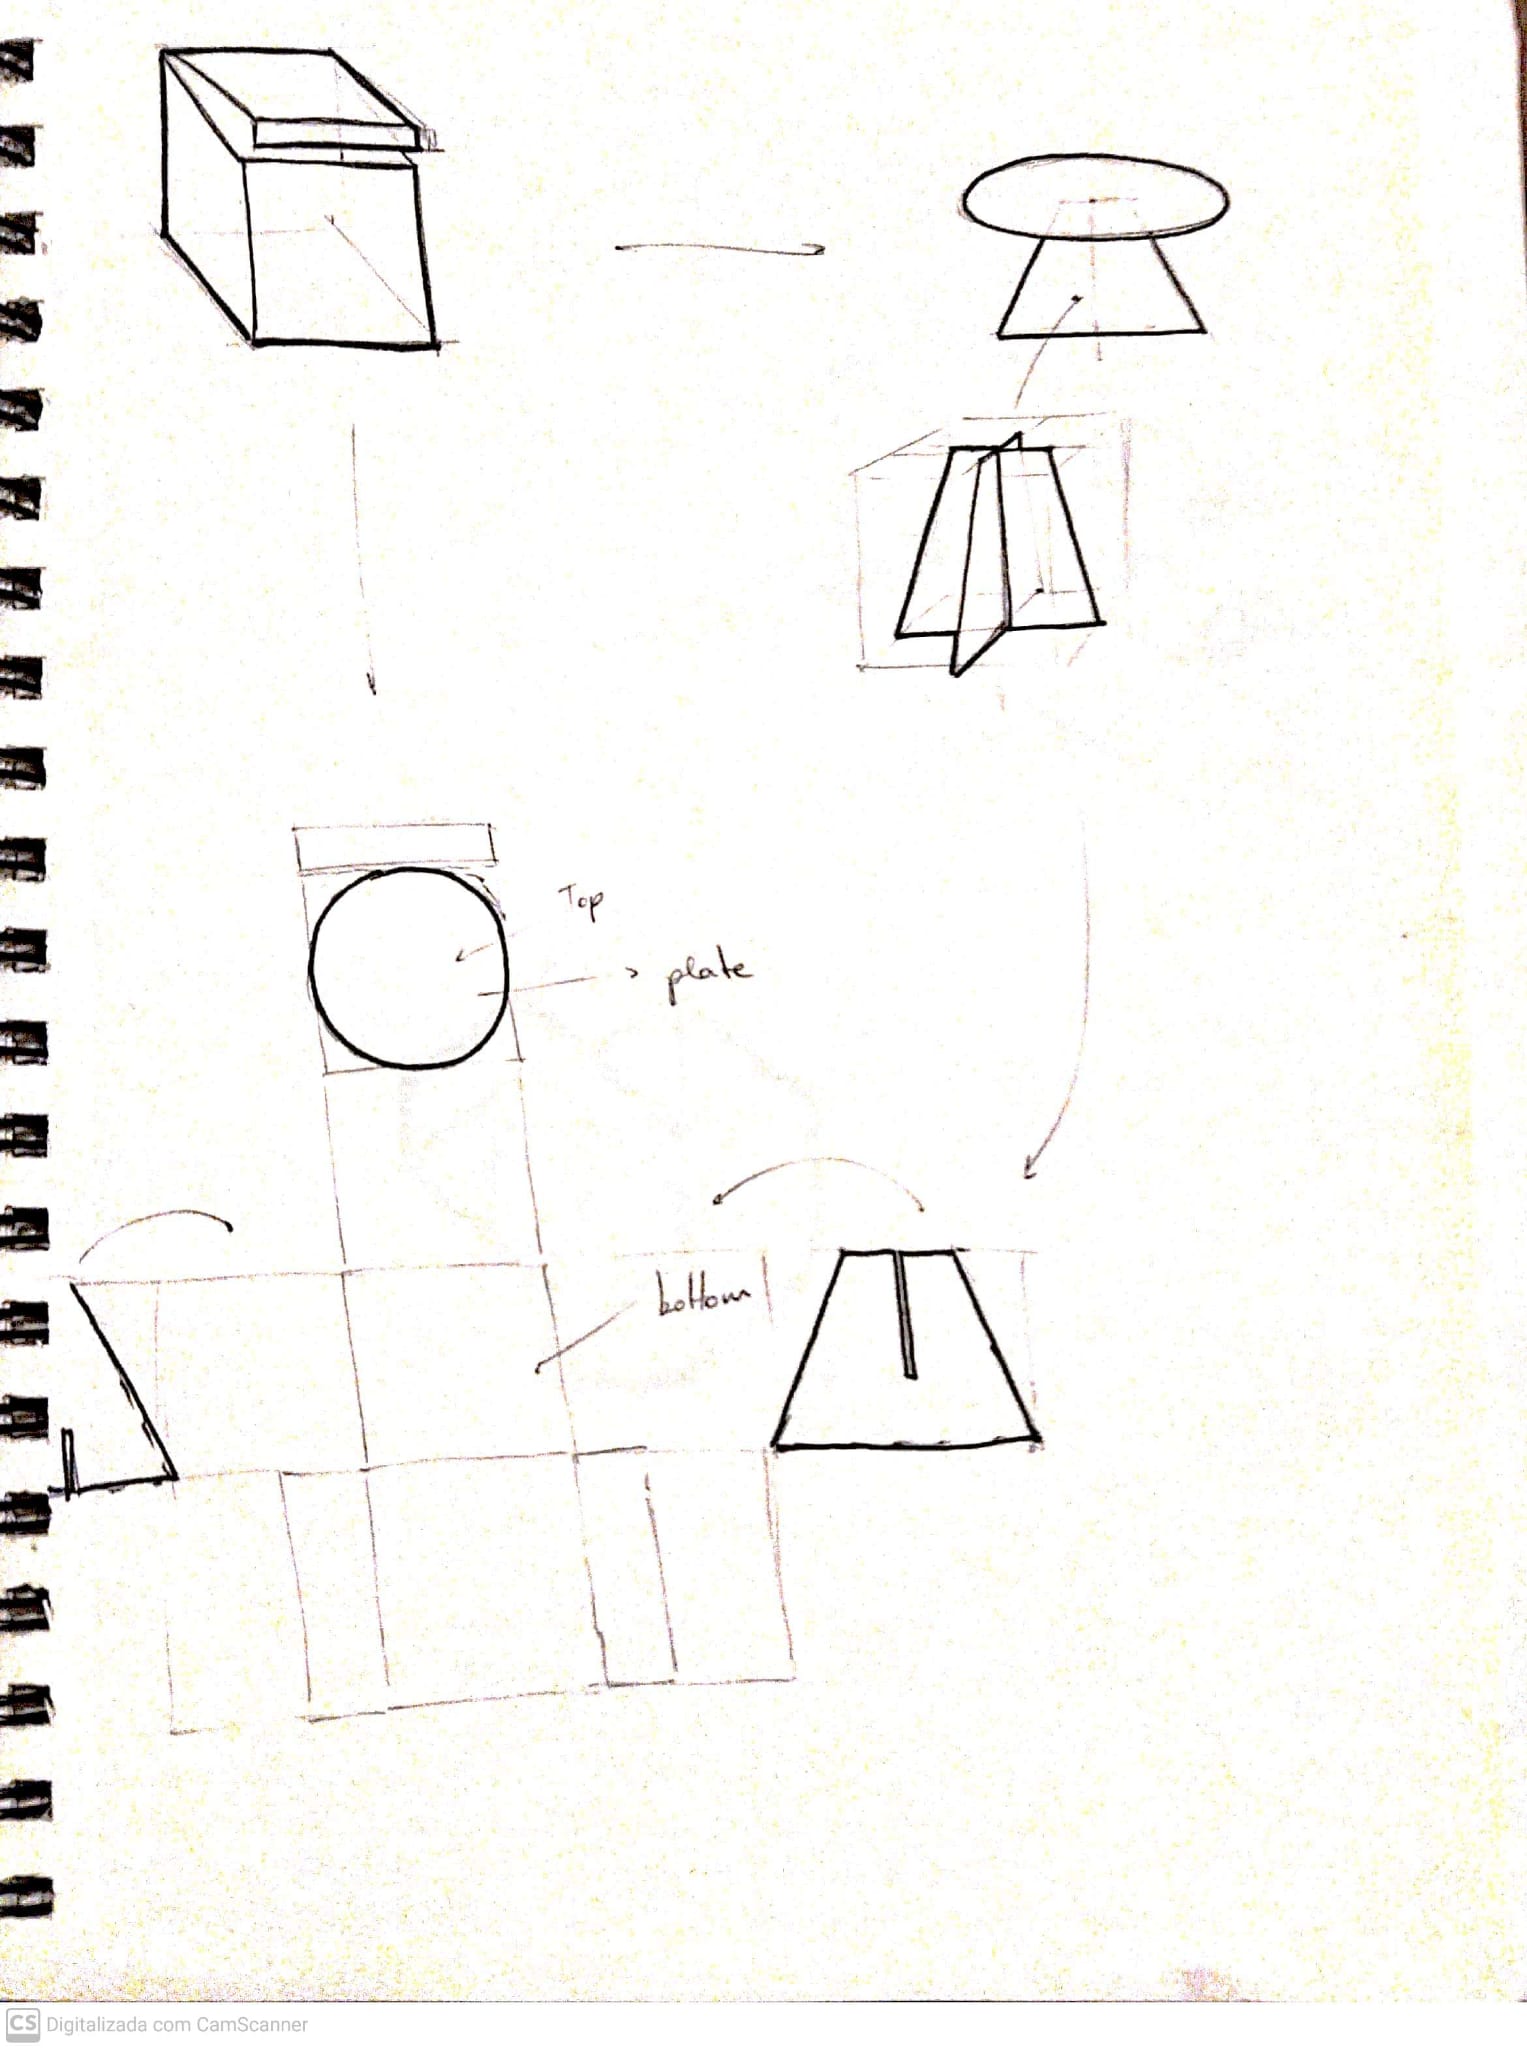 Top
plate
bottom
CS Digitalizada com CamScanner